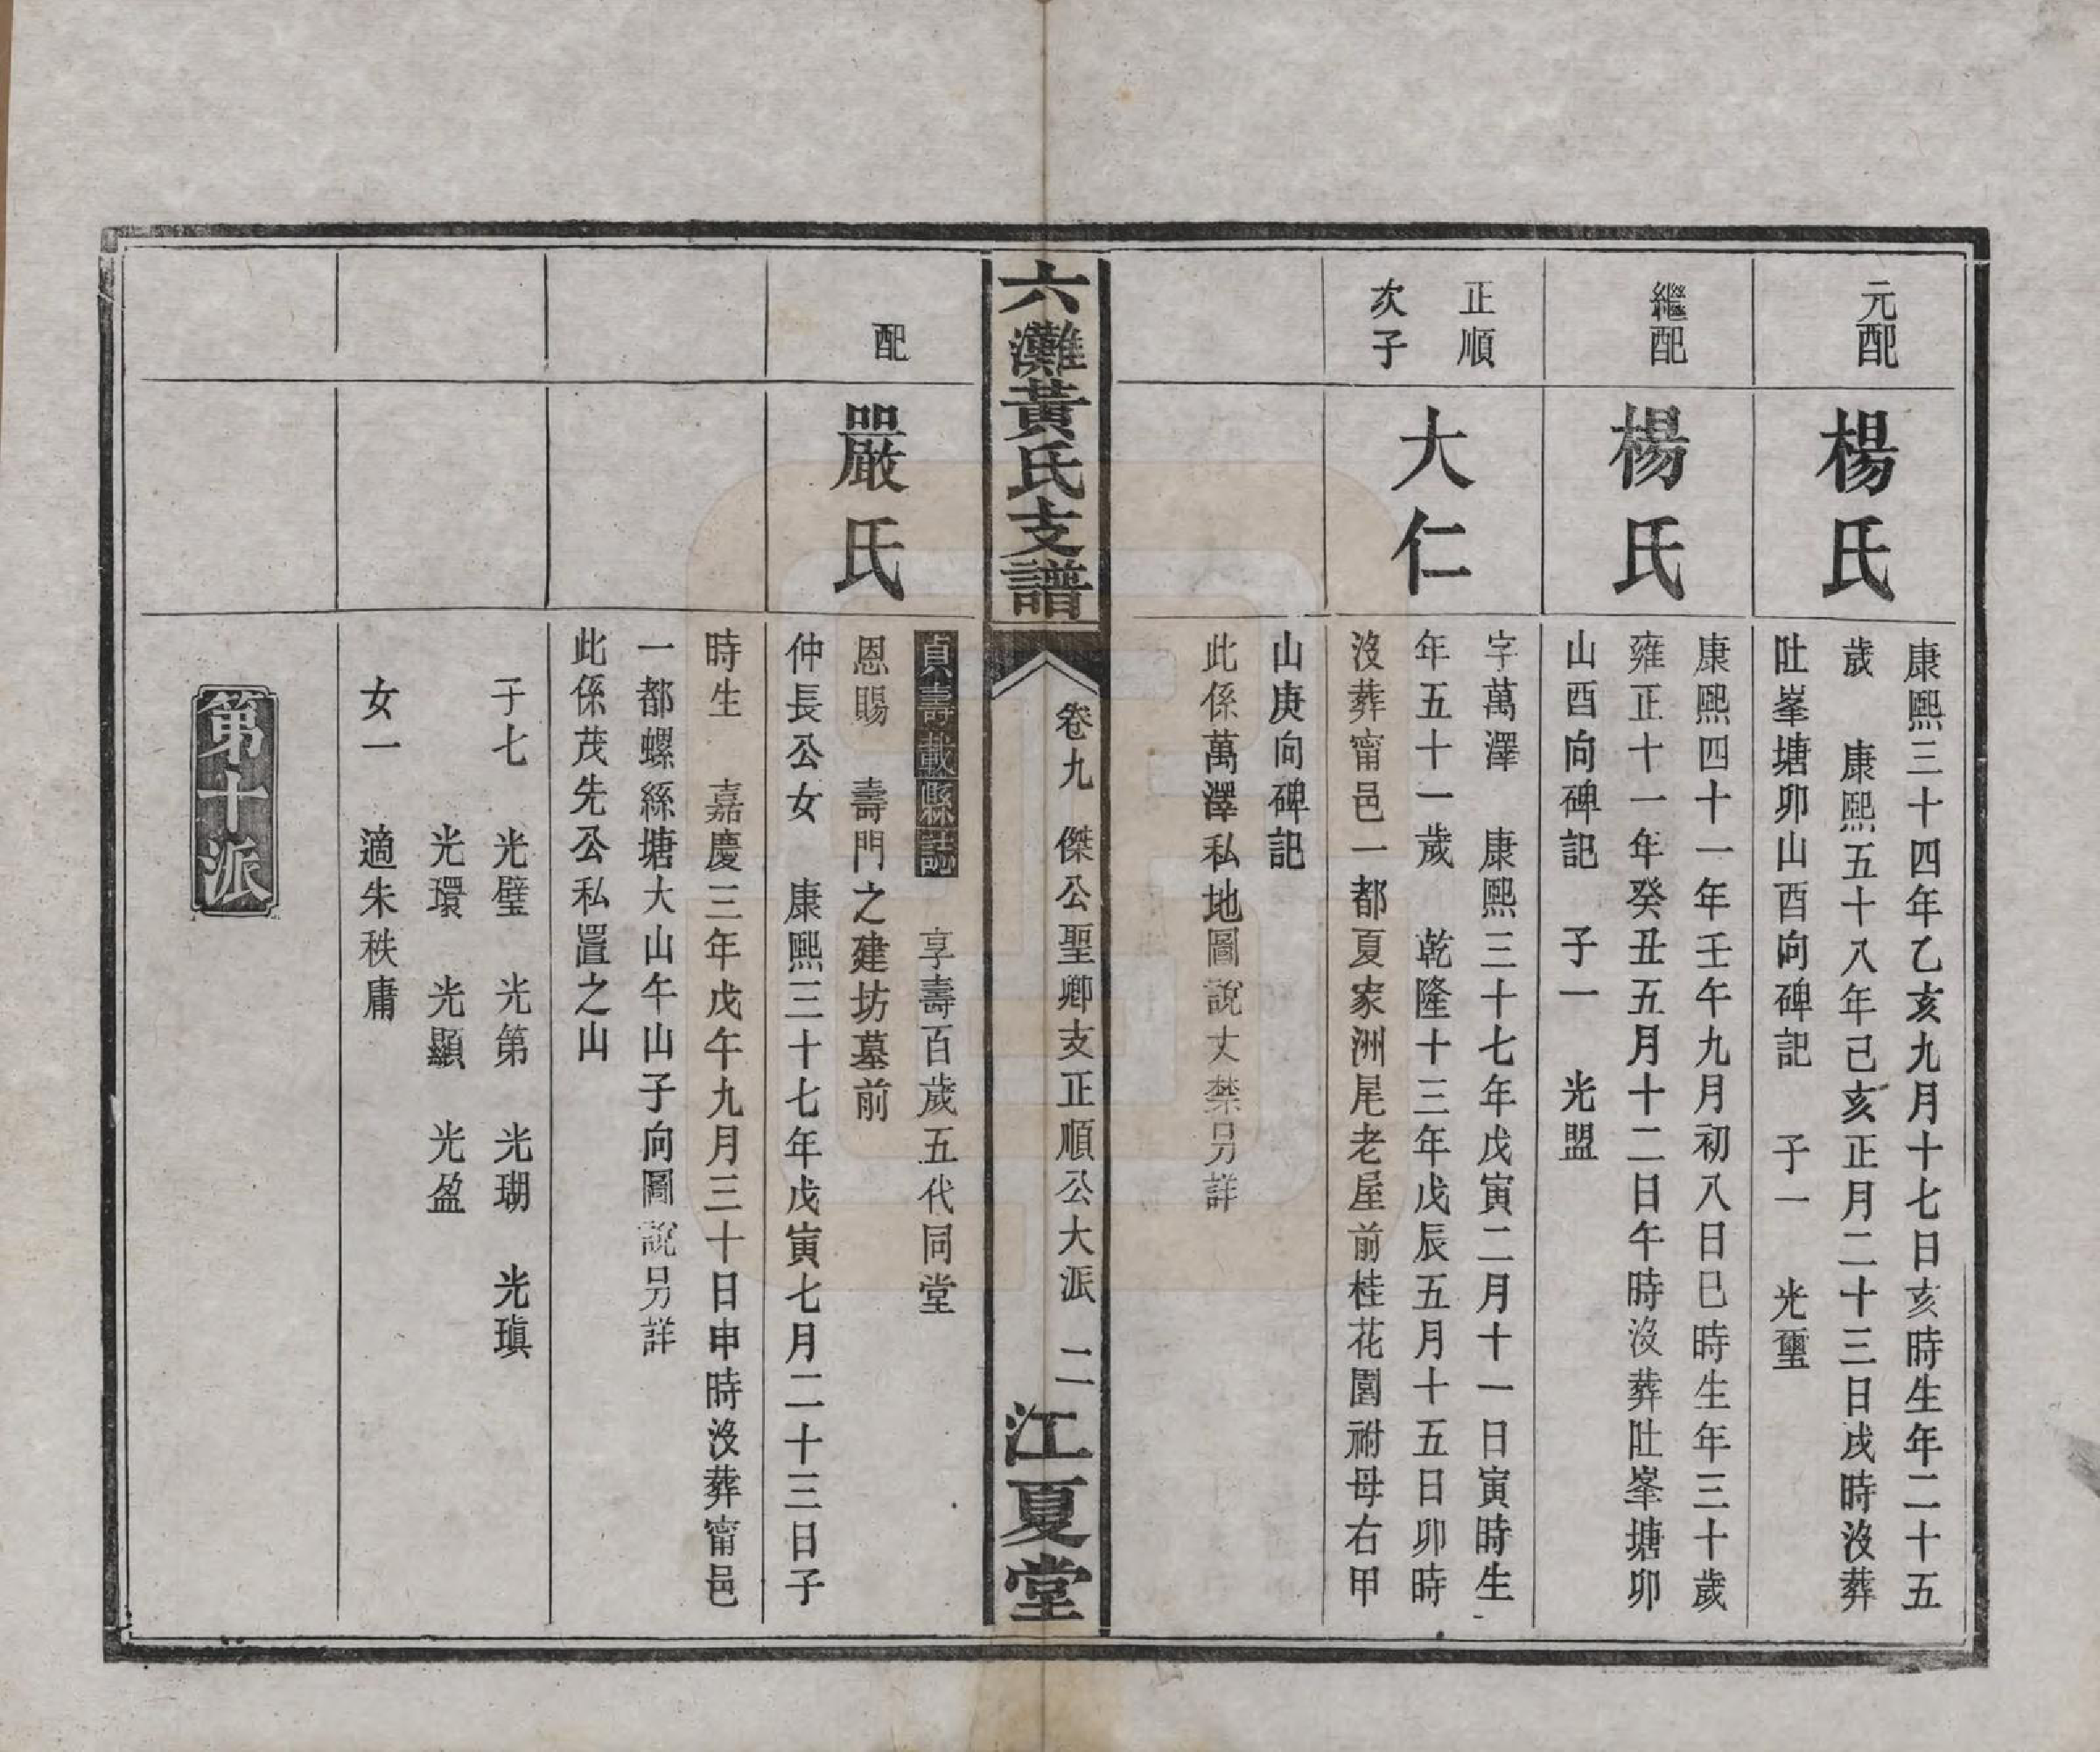 元配
楊氏
康熙三十四年乙亥九月十七日亥時生年二十五
歲　康熙五十八年己亥正月二十三日戌時沒葬
吐峯塘卯山酉向碑記　子一　光璽
繼配
楊氏
康熙四十一年壬午九月初八日巳時生年三十歲
雍正十一年癸丑五月十二日午時沒葬吐峯塘卯
山酉向碑記　子一　光盟
正順
次子
大仁
字萬澤　康熙三十七年戊寅二月十一日寅時生
年五十一歲　乾隆十三年戊辰五月十五日卯時
沒葬甯邑一都夏家洲尾老屋前桂花園祔母右甲
山庚向碑記
此係萬澤私地圖說丈禁另詳
六灘黃氏支譜
卷九　傑公聖卿支正順公大派　二
江夏堂
配
嚴氏
貞壽載縣誌　享壽百歲五代同堂
恩賜　壽門之建坊墓前
仲長公女　康熙三十七年戊寅七月二十三日子
時生　嘉慶三年戊午九月三十日申時沒葬甯邑
一都螺絲塘大山午山子向圖說另詳
此係茂先公私置之山
子七　光璧　光第　光瑚　光瑱
光環　光顯　光盈
女一　適朱秩庸
第十派